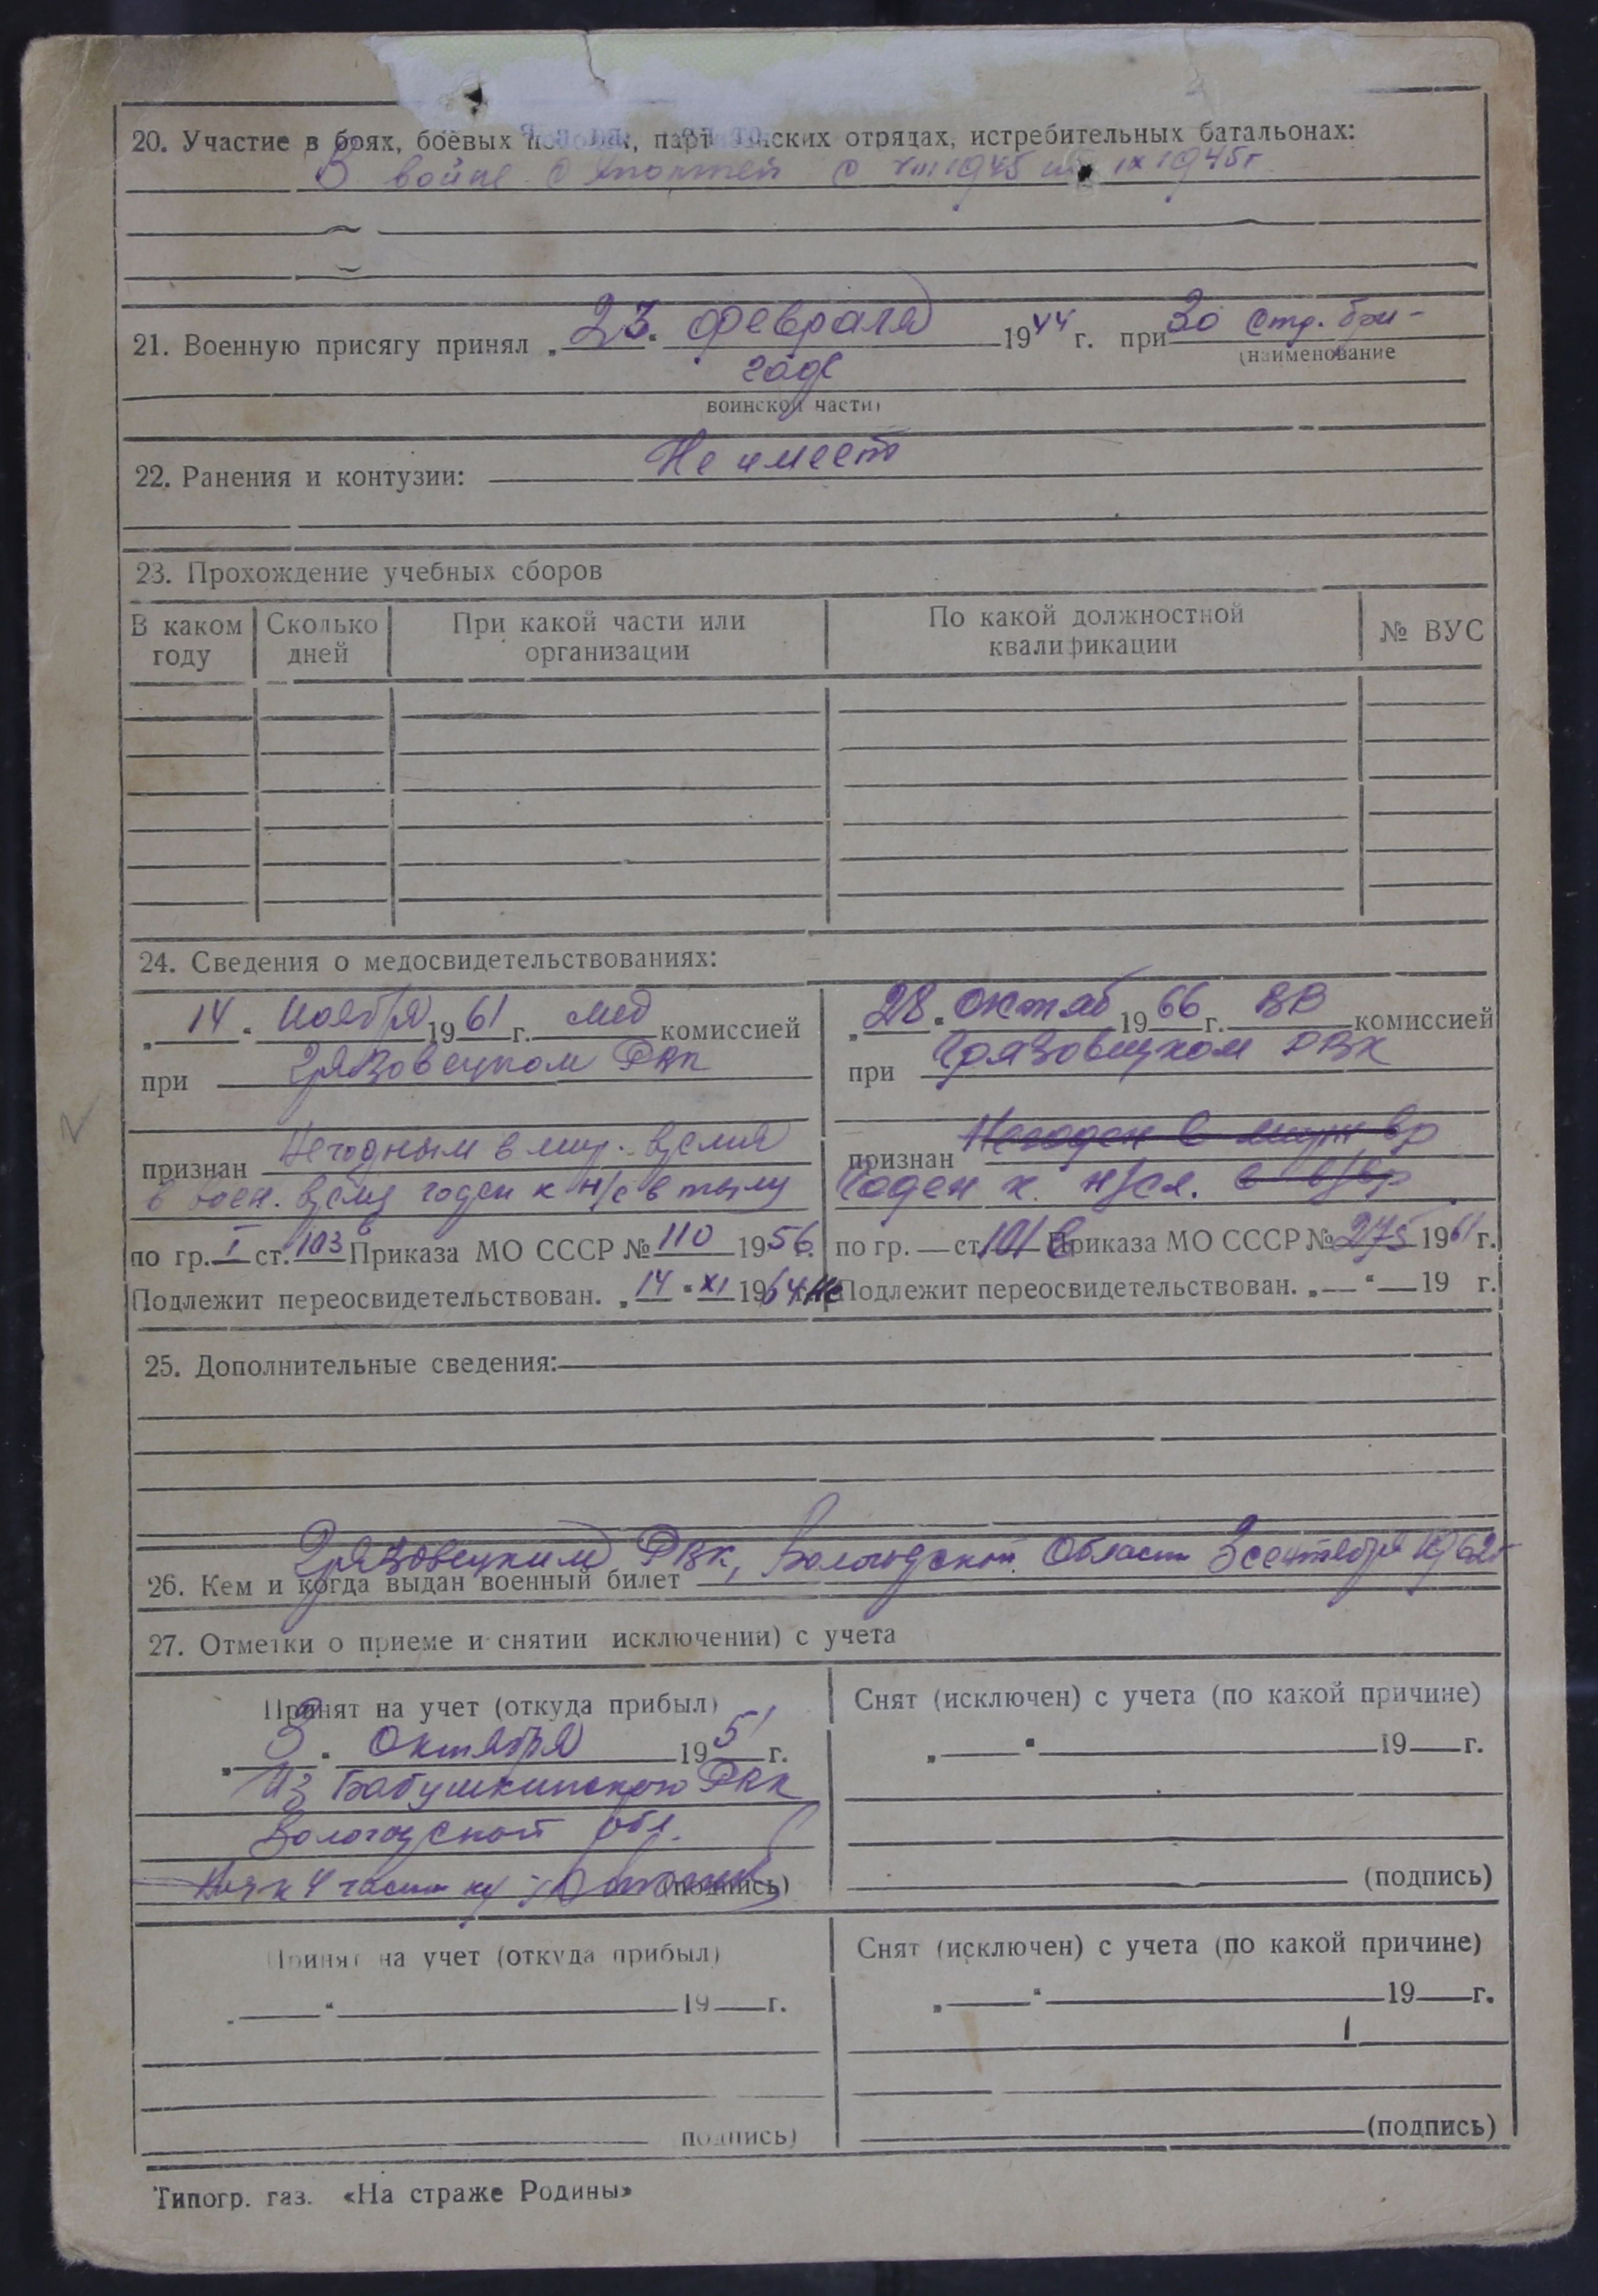 20. Участие в боях, боевых походах, партизанских отрядах, истребительных батальонах:
В войне с Японией с VIII 1945 по IX 1945 г
21. Военную присягу принял „23“ февраля 1944 г. при 30 стр. бри-
(наименование
гаде
воинской части)
22. Ранения и контузии: Не имеет
23. Прохождение учебных сборов
В каком году | Сколько дней | При какой части или организации | По какой должностной квалификации | № ВУС
24. Сведения о медосвидетельствованиях:
„14“ Ноября 1961 г. мед комиссией
при Грязовецком РВК
признан Негодным в мир. время
в воен. время годен к н/с в тылу
по гр. I ст. 103 Приказа МО СССР № 110 1956 г.
Подлежит переосвидетельствован. „14“ XI 1964 г.
„28“ Октяб 1966 г. ВВ комиссией
при Грязовецком РВК
признан Негоден в мирн вр
Годен к н/сл. в в/вр
по гр. — ст. 101 в Приказа МО СССР № 275 1961 г.
Не Подлежит переосвидетельствован. „—“ — 19 г.
25. Дополнительные сведения:
26. Кем и когда выдан военный билет Грязовецким РВК, Вологодской Области 3 сентября 1962 г
27. Отметки о приеме и снятии исключении) с учета
Принят на учет (откуда прибыл)
„3“ Октября 1951 г.
Из Бабушкинского РВК
Вологодской обл.
Нач 4 части
(подпись)
Снят (исключен) с учета (по какой причине)
„ “ 19 г.
(подпись)
Принят на учет (откуда прибыл)
„ “ 19 г.
подпись)
Снят (исключен) с учета (по какой причине)
„ “ 19 г.
(подпись)
Типогр. газ. «На страже Родины»